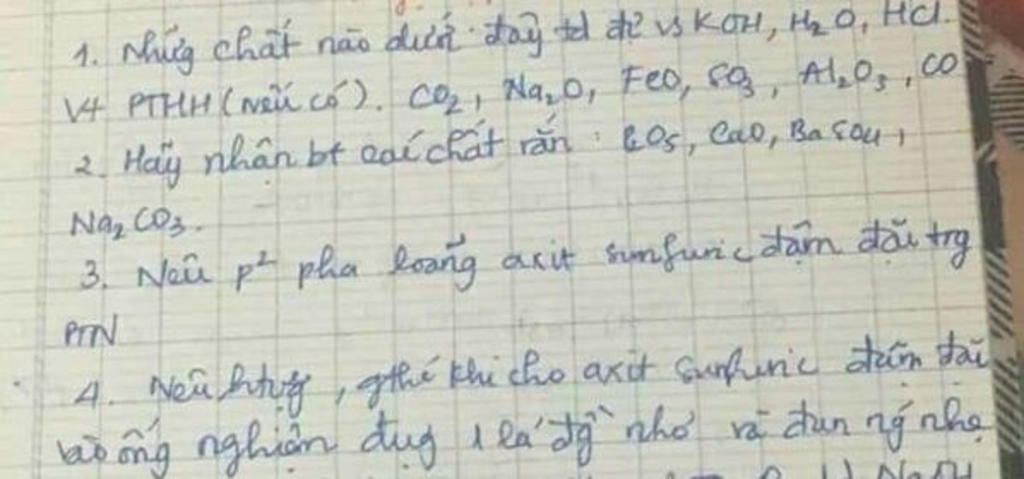 1. Những chất nào dưới đây td đc vs KOH, H₂O, HCl.
V4 PTHH (nếu có). CO₂, Na₂O, FeO, SO₃, Al₂O₃, CO
2. Hãy nhận bt các chất rắn : P₂O₅, CaO, BaSO₄,
Na₂CO₃.
3. Nêu p² pha loãng axit sunfuric đậm đặc trg
PTN
4. Nêu htượg, gthế khi cho axit sunfuric đậm đặc
vào ống nghiệm đựg 1 lá đồg nhỏ và đun nóg nhẹ
NaOH